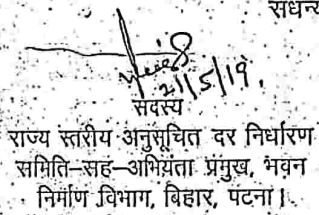 सधन्य
21/5/19.
सदस्य
राज्य स्तरीय अनुसूचित दर निर्धारण
समिति–सह–अभियंता प्रमुख, भवन
निर्माण विभाग, बिहार, पटना।